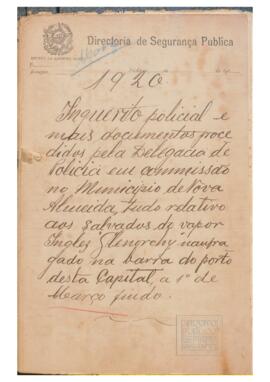 Directoria de Segurança Publica
1920
Inquerito policial e
mais documentos proce
didos pela Delegacia de
Policia em commissão
no Municipio de Nova
Almeida, tudo relativo
aos salvados do vapor
Inglez "Glenorchy" naufra
gado na barra do porto
desta Capital, a 1º de
Março findo.